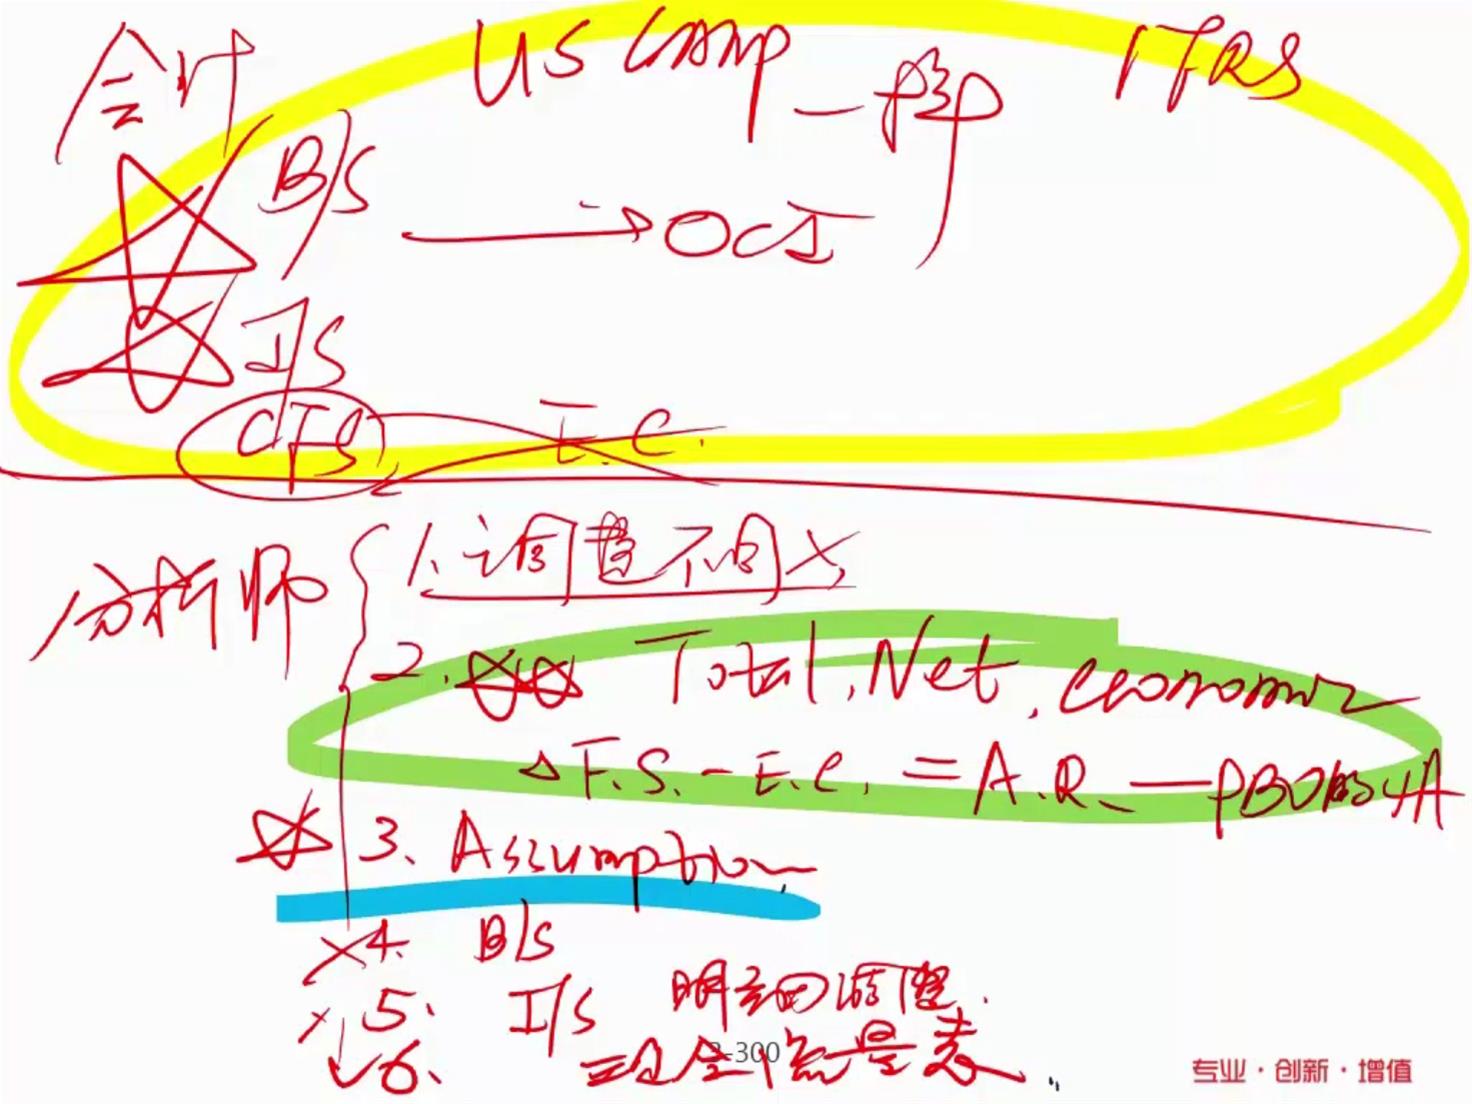 会计 US GAAP 一样 IFRS
B/S → OCI
I/S
CFS E.C.
分析师 1. 调整不同
2. Total, Net, economic
△F.S. - E.C. = A.R. — PBO的
3. Assumption
4. B/S
5. I/S 明细调整.
6. 现金流量表
-300
专业·创新·增值